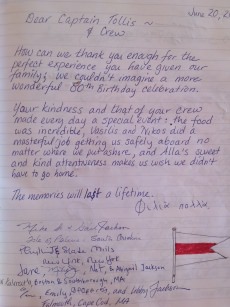 June 20, 20
Dear Captain Tollis ~
& Crew
How can we thank you enough for the
perfect experience you have given our
family; we couldn't imagine a more
wonderful 80th Birthday celebration.
Your kindness and that of your crew
made every day a special event: the food
was incredible, Vasilis and Nikos did a
masterful job getting us safely aboard no
matter where we put ashore, and Alla's sweet
and kind attentiveness makes us wish we didn't
have to go home.
The memories will last a lifetime.
Jackson
Isle of Palms - South Carolina
& Slade Mills
New York, New York
Jane, Nat, & Abigail Jackson
Boston & Southborough, MA
Emily, and Jackson
Falmouth, Cape Cod, MA